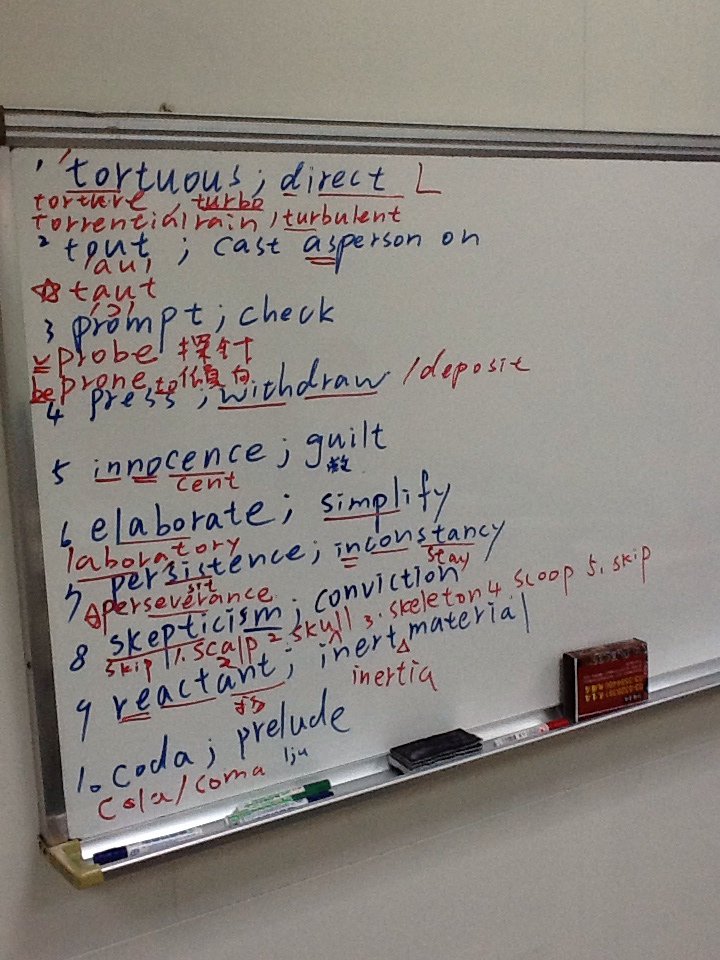 1 tortuous; direct L
torture, turbo
torrential rain, turbulent
2 tout ; cast asperson on
/au/
☆ taut
/ɔ/
3 prompt; check
probe 探針
be prone to 傾向
4 press ; withdraw /deposit
5 innocence; guilt
cent
6 elaborate; simplify
laboratory
7 persistence; inconstancy
sit stay
perseverance
8 skepticism; conviction
skip 1. scalp 2. skull 3. skeleton 4. scoop 5. skip
9 reactant; inert material
inertia
10 coda; prelude
cola/coma lju